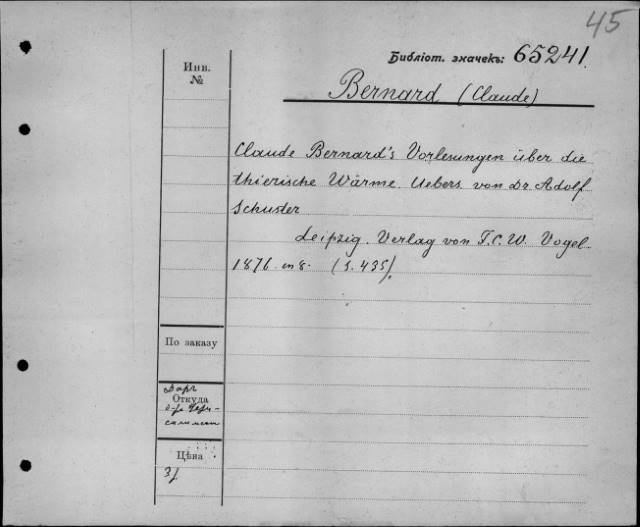 45
Библіот. значекъ: 65241.
Инв.
№
Bernard (Claude)
Claude Bernard's Vorlesungen über die
thierische Wärme. Uebers. von Dr. Adolf
Schuster
Leipzig. Verlag von F.C.W. Vogel
1876. in 8. (S. 435).
По заказу
Даръ
Откуда
д-ра
Цѣна
3